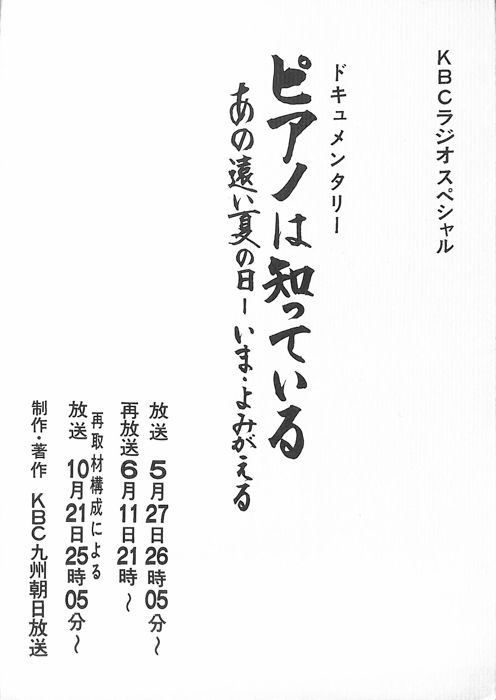 KBCラジオスペシャル
ドキュメンタリー
ピアノは知っている
あの遠い夏の日ーいま・よみがえる
放送 5月27日26時05分〜
再放送6月11日21時〜
再取材構成による
放送 10月21日25時05分〜
制作・著作 KBC九州朝日放送